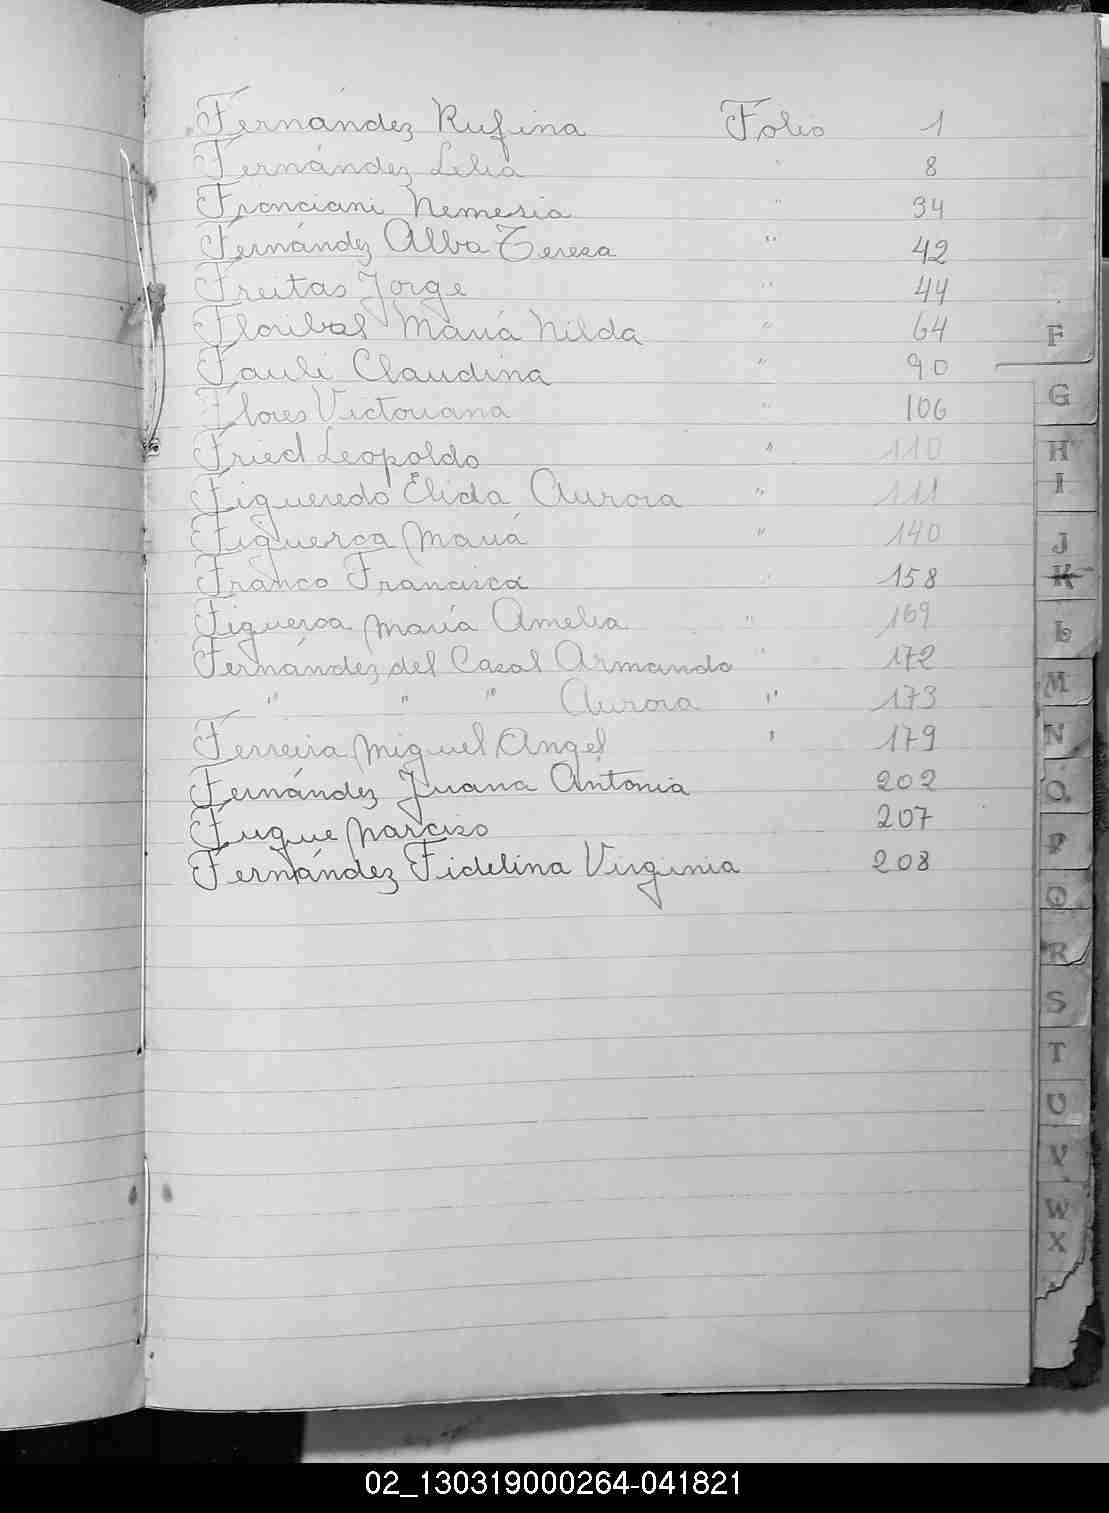 Fernández Rufina Folio 1
Fernández Lelia " 8
Franciani Nemesia " 34
Fernández Alba Teresa " 42
Freitas Jorge " 44
Floribal María Nilda " 64
Fauli Claudina " 90
Flores Victoriana " 106
Fried Leopoldo " 110
Figueredo Elida Aurora " 111
Figueroa María " 140
Franco Francisca " 158
Figueroa María Amelia " 169
Fernández del Casal Armando " 172
" " " Aurora " 173
Ferreira Miguel Angel " 179
Fernández Juana Antonia 202
Fuque Narciso 207
Fernández Fidelina Virginia 208
F
G
H
I
J
K
L
M
N
O
P
Q
R
S
T
U
V
W
X
02_130319000264-041821